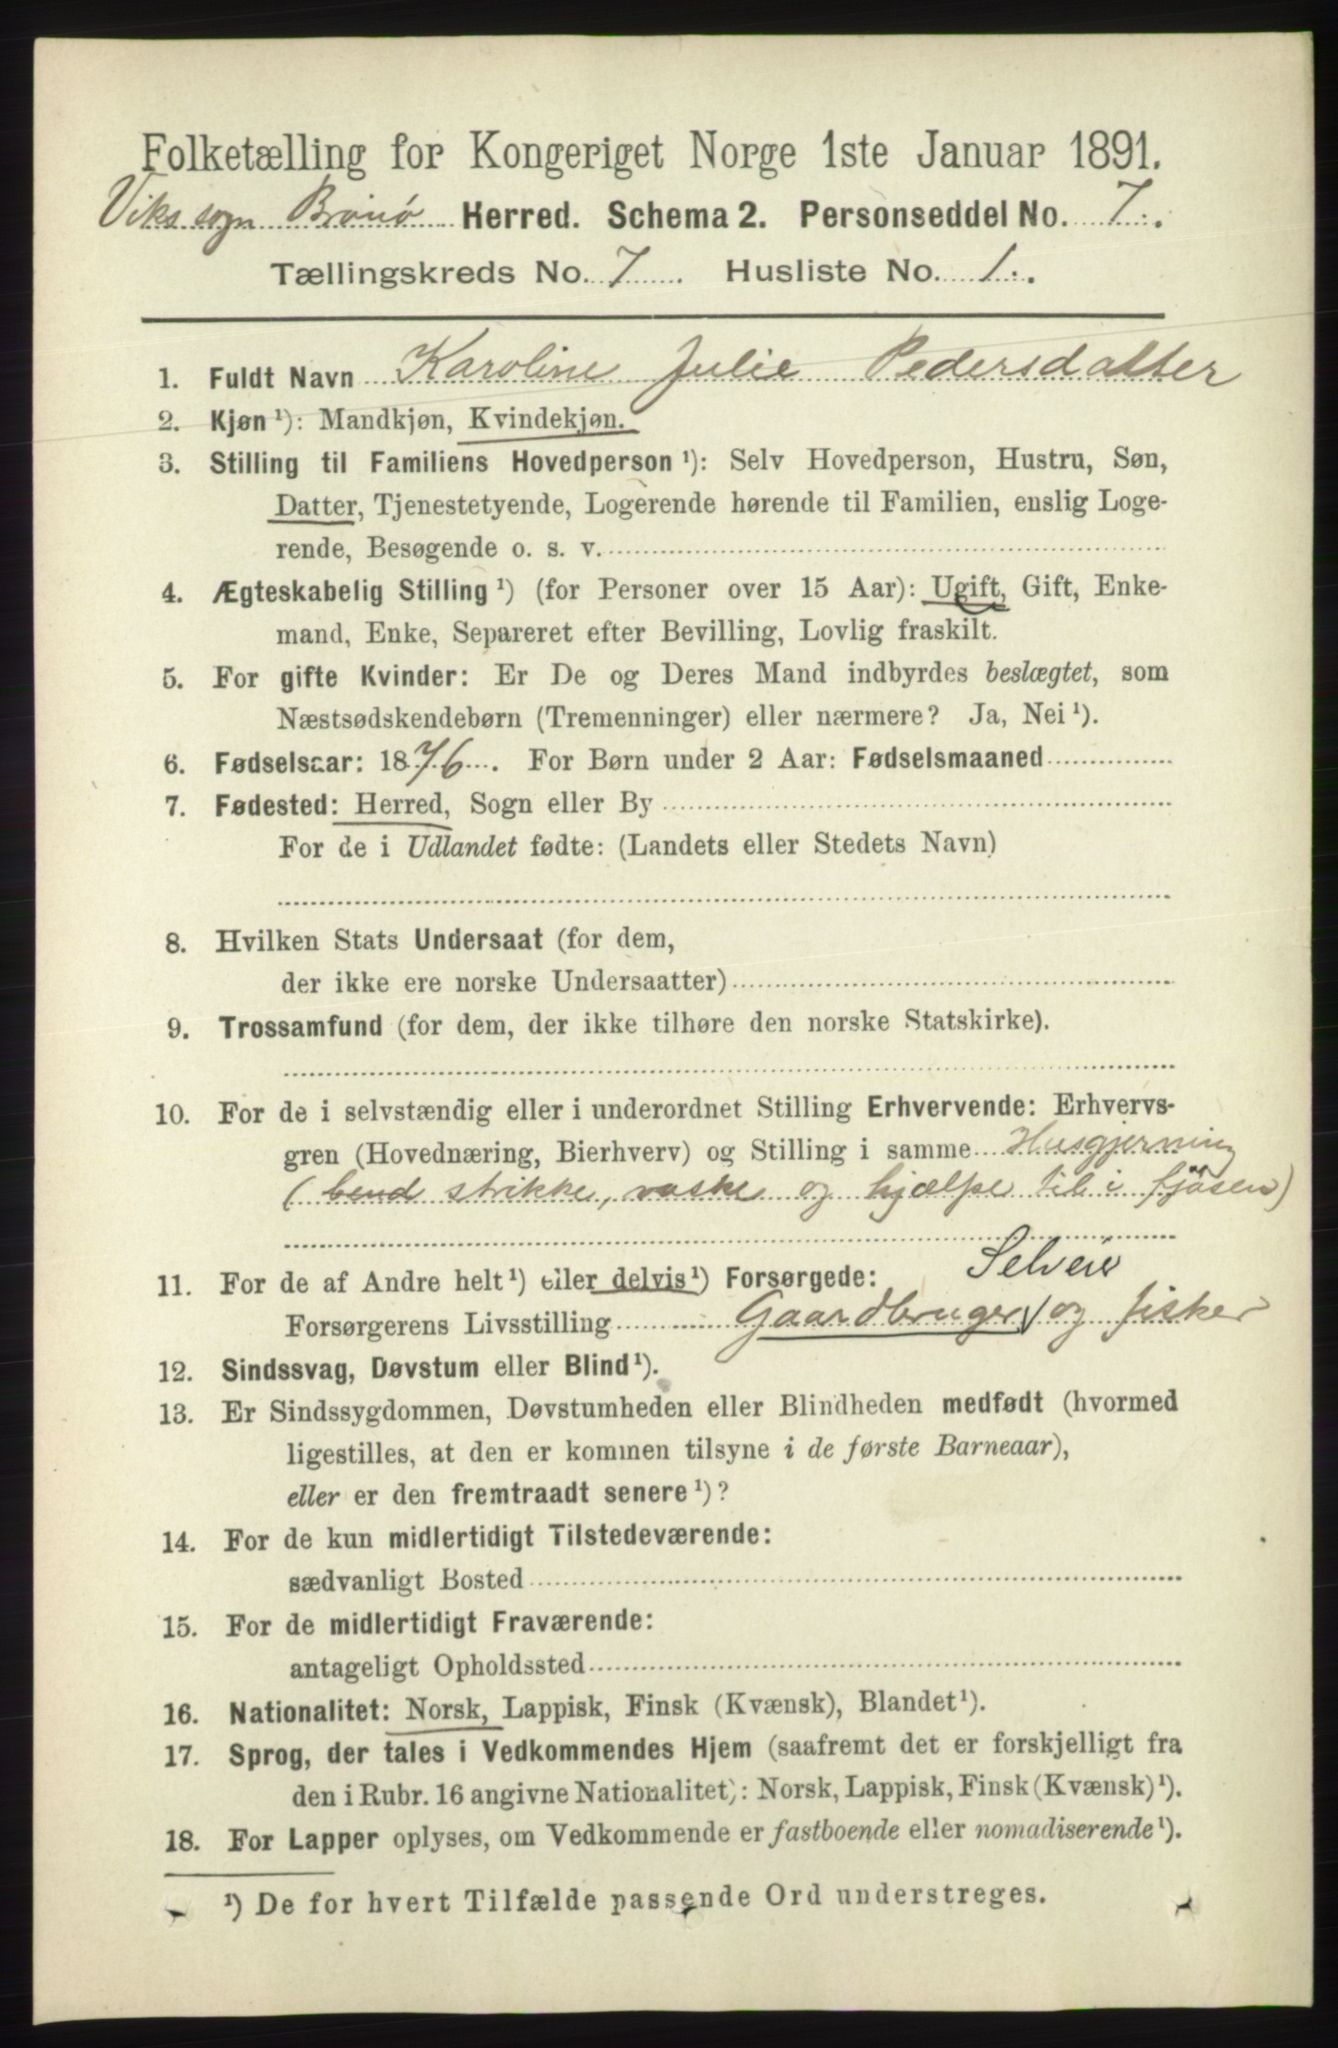 Folketælling for Kongeriget Norge 1ste Januar 1891.
Viks sogn Brønø Herred. Schema 2. Personseddel No. 7.
Tællingskreds No. 7 Husliste No. 1.
1. Fuldt Navn Karoline Julie Pedersdatter
2. Kjøn ¹): Mandkjøn, Kvindekjøn.
3. Stilling til Familiens Hovedperson ¹): Selv Hovedperson, Hustru, Søn,
Datter, Tjenestetyende, Logerende hørende til Familien, enslig Loge-
rende, Besøgende o. s. v.
4. Ægteskabelig Stilling ¹) (for Personer over 15 Aar): Ugift, Gift, Enke-
mand, Enke, Separeret efter Bevilling, Lovlig fraskilt.
5. For gifte Kvinder: Er De og Deres Mand indbyrdes beslægtet, som
Næstsødskendebørn (Tremenninger) eller nærmere? Ja, Nei ¹).
6. Fødselsaar: 1876. For Børn under 2 Aar: Fødselsmaaned
7. Fødested: Herred, Sogn eller By
For de i Udlandet fødte: (Landets eller Stedets Navn)
8. Hvilken Stats Undersaat (for dem,
der ikke ere norske Undersaatter)
9. Trossamfund (for dem, der ikke tilhøre den norske Statskirke).
10. For de i selvstændig eller i underordnet Stilling Erhvervende: Erhvervs-
gren (Hovednæring, Bierhverv) og Stilling i samme Husgjerning
strikke, vaske og hjælpe til i fjøsen)
11. For de af Andre helt ¹) eller delvis ¹) Forsørgede: Selveier
Forsørgerens Livsstilling Gaardbruger og fisker
12. Sindssvag, Døvstum eller Blind ¹).
13. Er Sindssygdommen, Døvstumheden eller Blindheden medfødt (hvormed
ligestilles, at den er kommen tilsyne i de første Barneaar),
eller er den fremtraadt senere ¹)?
14. For de kun midlertidigt Tilstedeværende:
sædvanligt Bosted
15. For de midlertidigt Fraværende:
antageligt Opholdssted
16. Nationalitet: Norsk, Lappisk, Finsk (Kvænsk), Blandet ¹).
17. Sprog, der tales i Vedkommendes Hjem (saafremt det er forskjelligt fra
den i Rubr. 16 angivne Nationalitet): Norsk, Lappisk, Finsk (Kvænsk) ¹).
18. For Lapper oplyses, om Vedkommende er fastboende eller nomadiserende ¹).
¹) De for hvert Tilfælde passende Ord understreges.